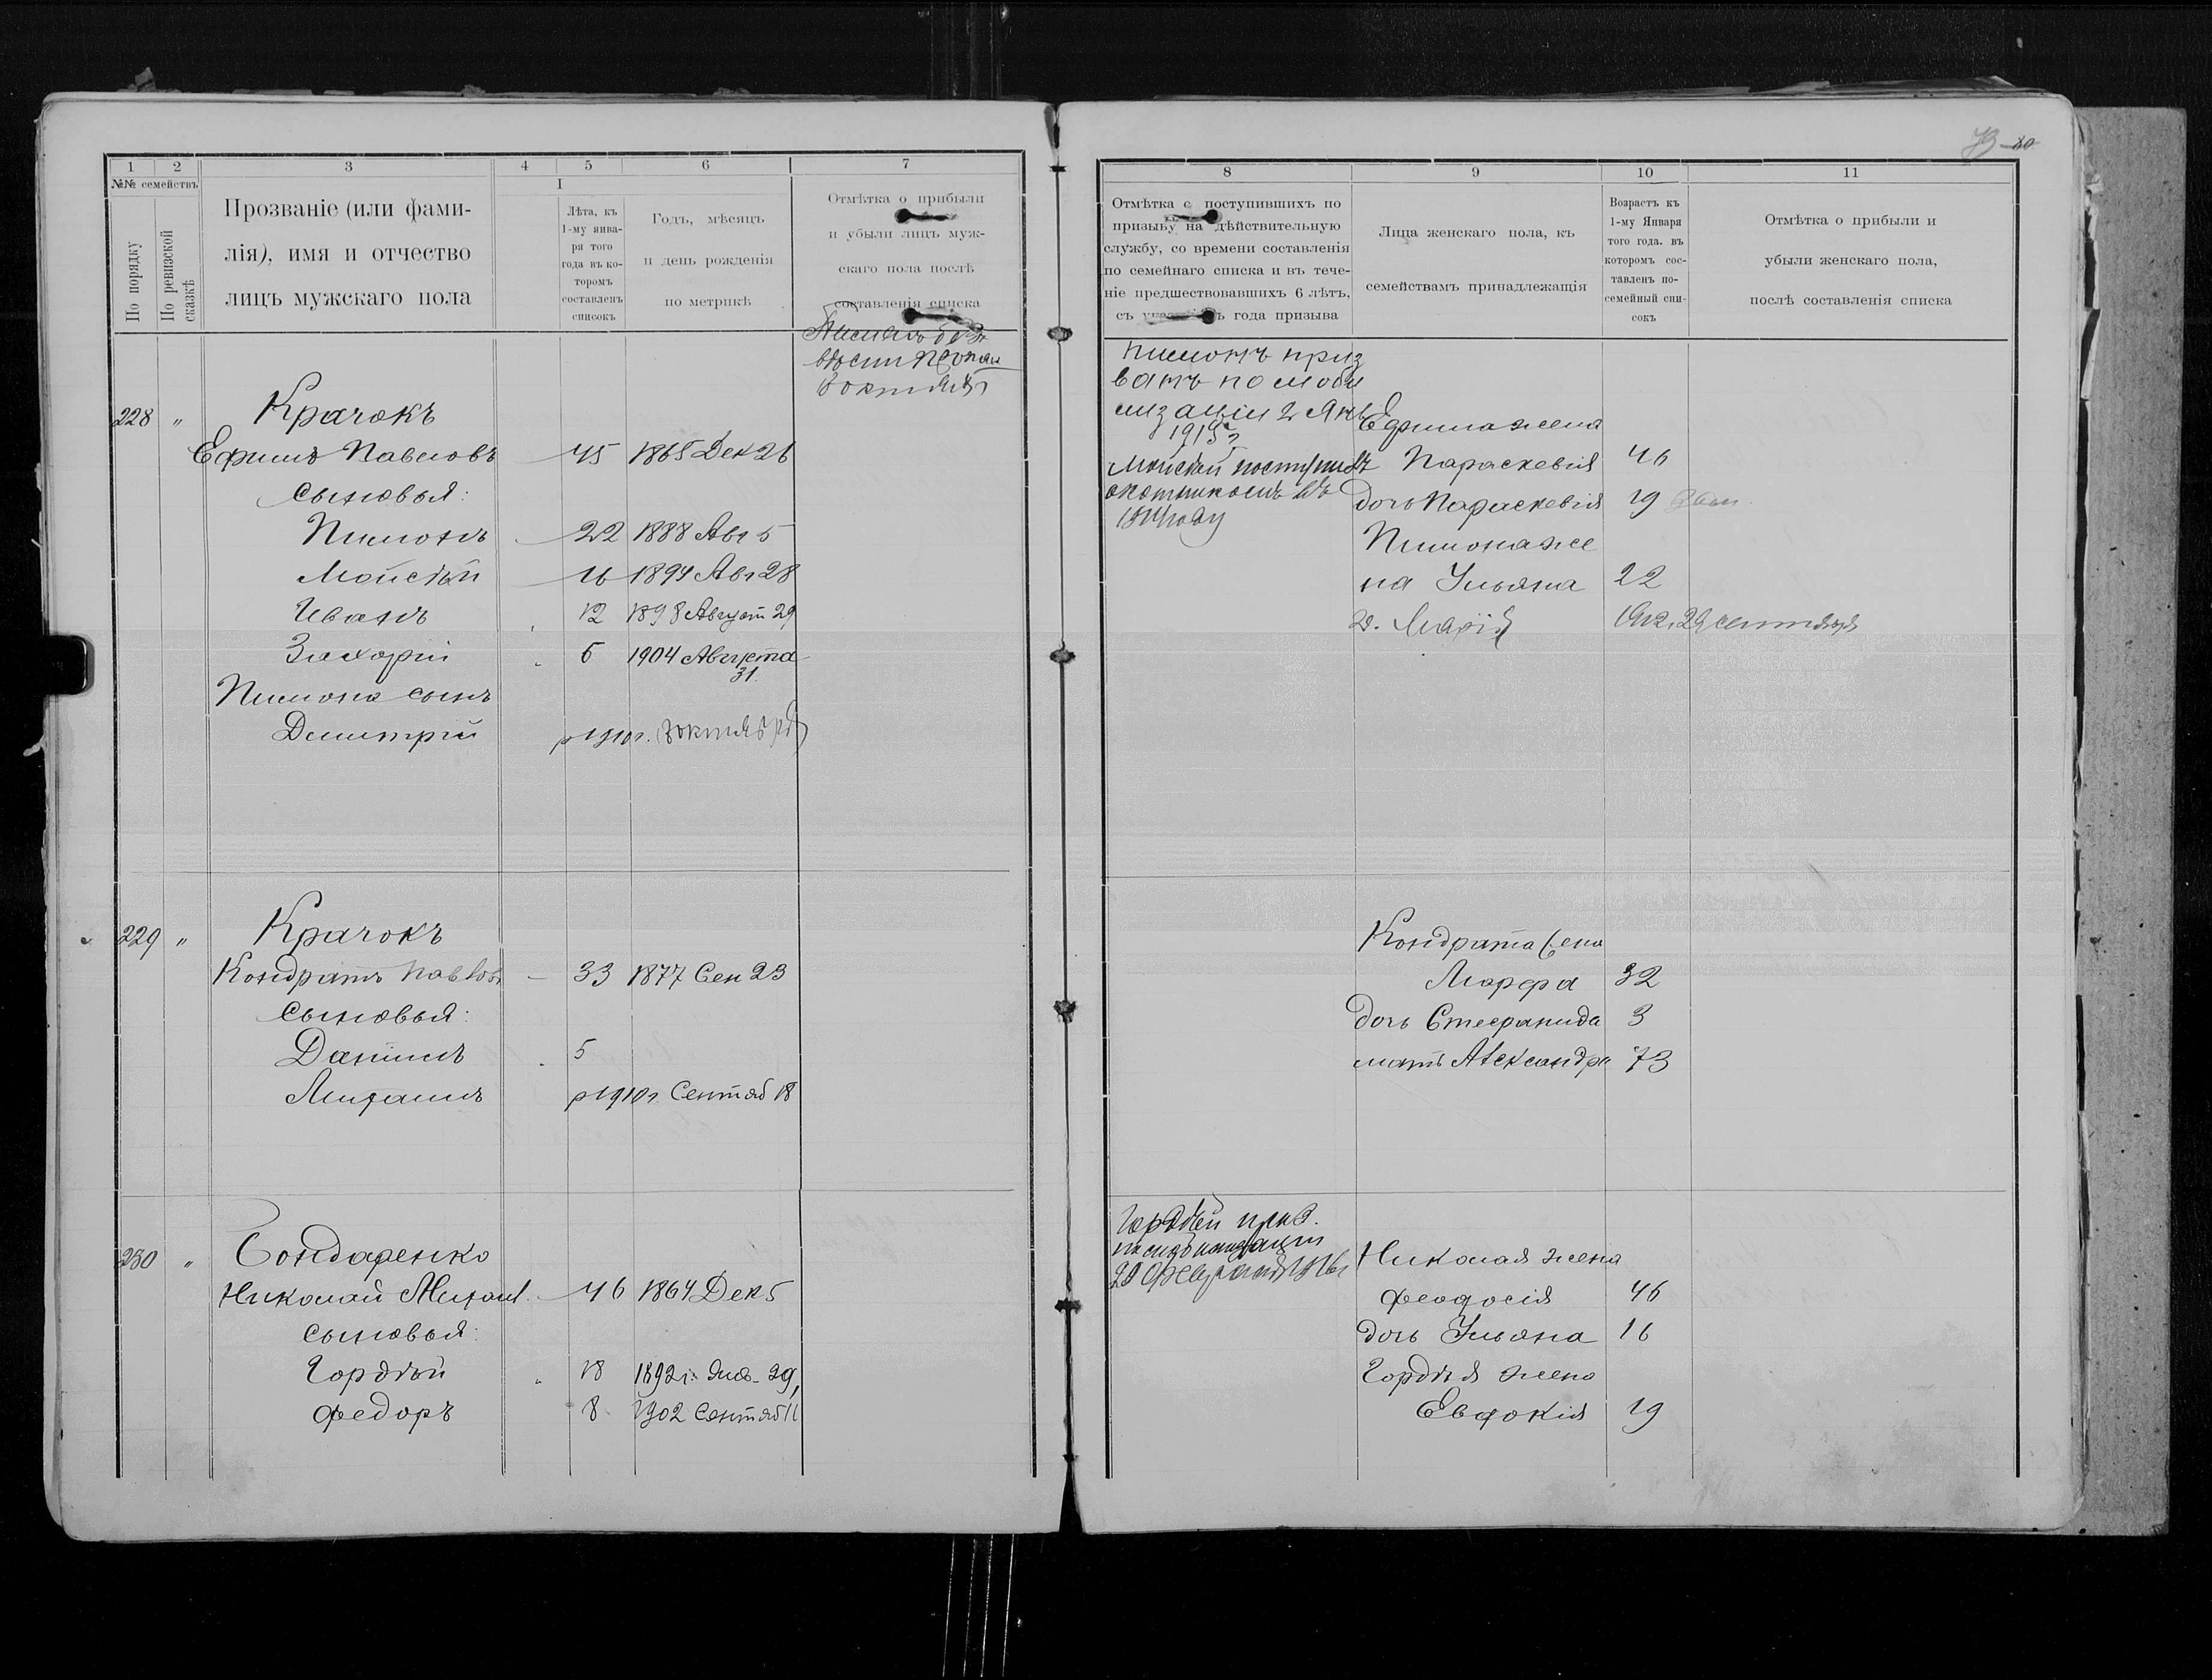 1 2 3 4 5 6 7
№№ семействъ
По порядку
По ревизской сказкѣ
Прозваніе (или фами-
лія), имя и отчество
лицъ мужскаго пола
I
Лѣта, къ
1-му янва-
ря того
года въ ко-
торомъ
составленъ
списокъ
Годъ, мѣсяцъ
и день рожденія
по метрикѣ
Отмѣтка о прибыли
и убыли лицъ муж-
скаго пола послѣ
составленія списка
Пимонъ без
вѣсти
228 " Крачокъ
Ефимъ Павловъ — 45 1865 Дек 26
сыновья:
Пимонъ — 22 1888 Авг 5
Мойсѣй — 16 1894 Авг 28
Иванъ 12 1898 Август 29
Захорій 5 1904 Августа
31.
Пимона сынъ
Димитрій р 1910 г.
229 " Крачокъ
Кондратъ Павлов — 33 1877 Сен 23
сыновья:
Даниилъ 5
Михаилъ р 1910 г. Сентяб 18
230 " Бондаренко
Николай Михаил. — 46 1864 Дек 5
сыновья:
Гордѣй 18 1892 г. Янв. 29
Федоръ 8 1902 Сентяб 11
8 9 10 11
Отмѣтка о поступившихъ по
призыву на дѣйствительную
службу, со времени составленія
по семейнаго списка и въ тече-
ніе предшествовавшихъ 6 лѣтъ,
съ года призыва
Лица женскаго пола, къ
семействамъ принадлежащія
Возрастъ къ
1-му Января
того года. въ
которомъ сос-
тавленъ по-
семейный спи-
сокъ
Отмѣтка о прибыли и
убыли женскаго пола,
послѣ составленія списка
Пимонъ приз
ванъ по моби
лизаціи 2 Янв
1915 г
Мойсей поступилъ
охотникомъ въ
1914 году
Ефима жена
Параскевія 46
дочь Параскевія 19
Пимона же
на Ульяна 22
д. Марія 1912 г. 29 сентября
Кондрата жена
Марфа 32
дочь Стефанида 3
мать Александра 73
Гордѣй приз.
по мобилизаціи
20 февраля 1916 г
Николая жена
Феодосія 46
дочь Ульяна 16
Гордѣя жена
Евдокія 19